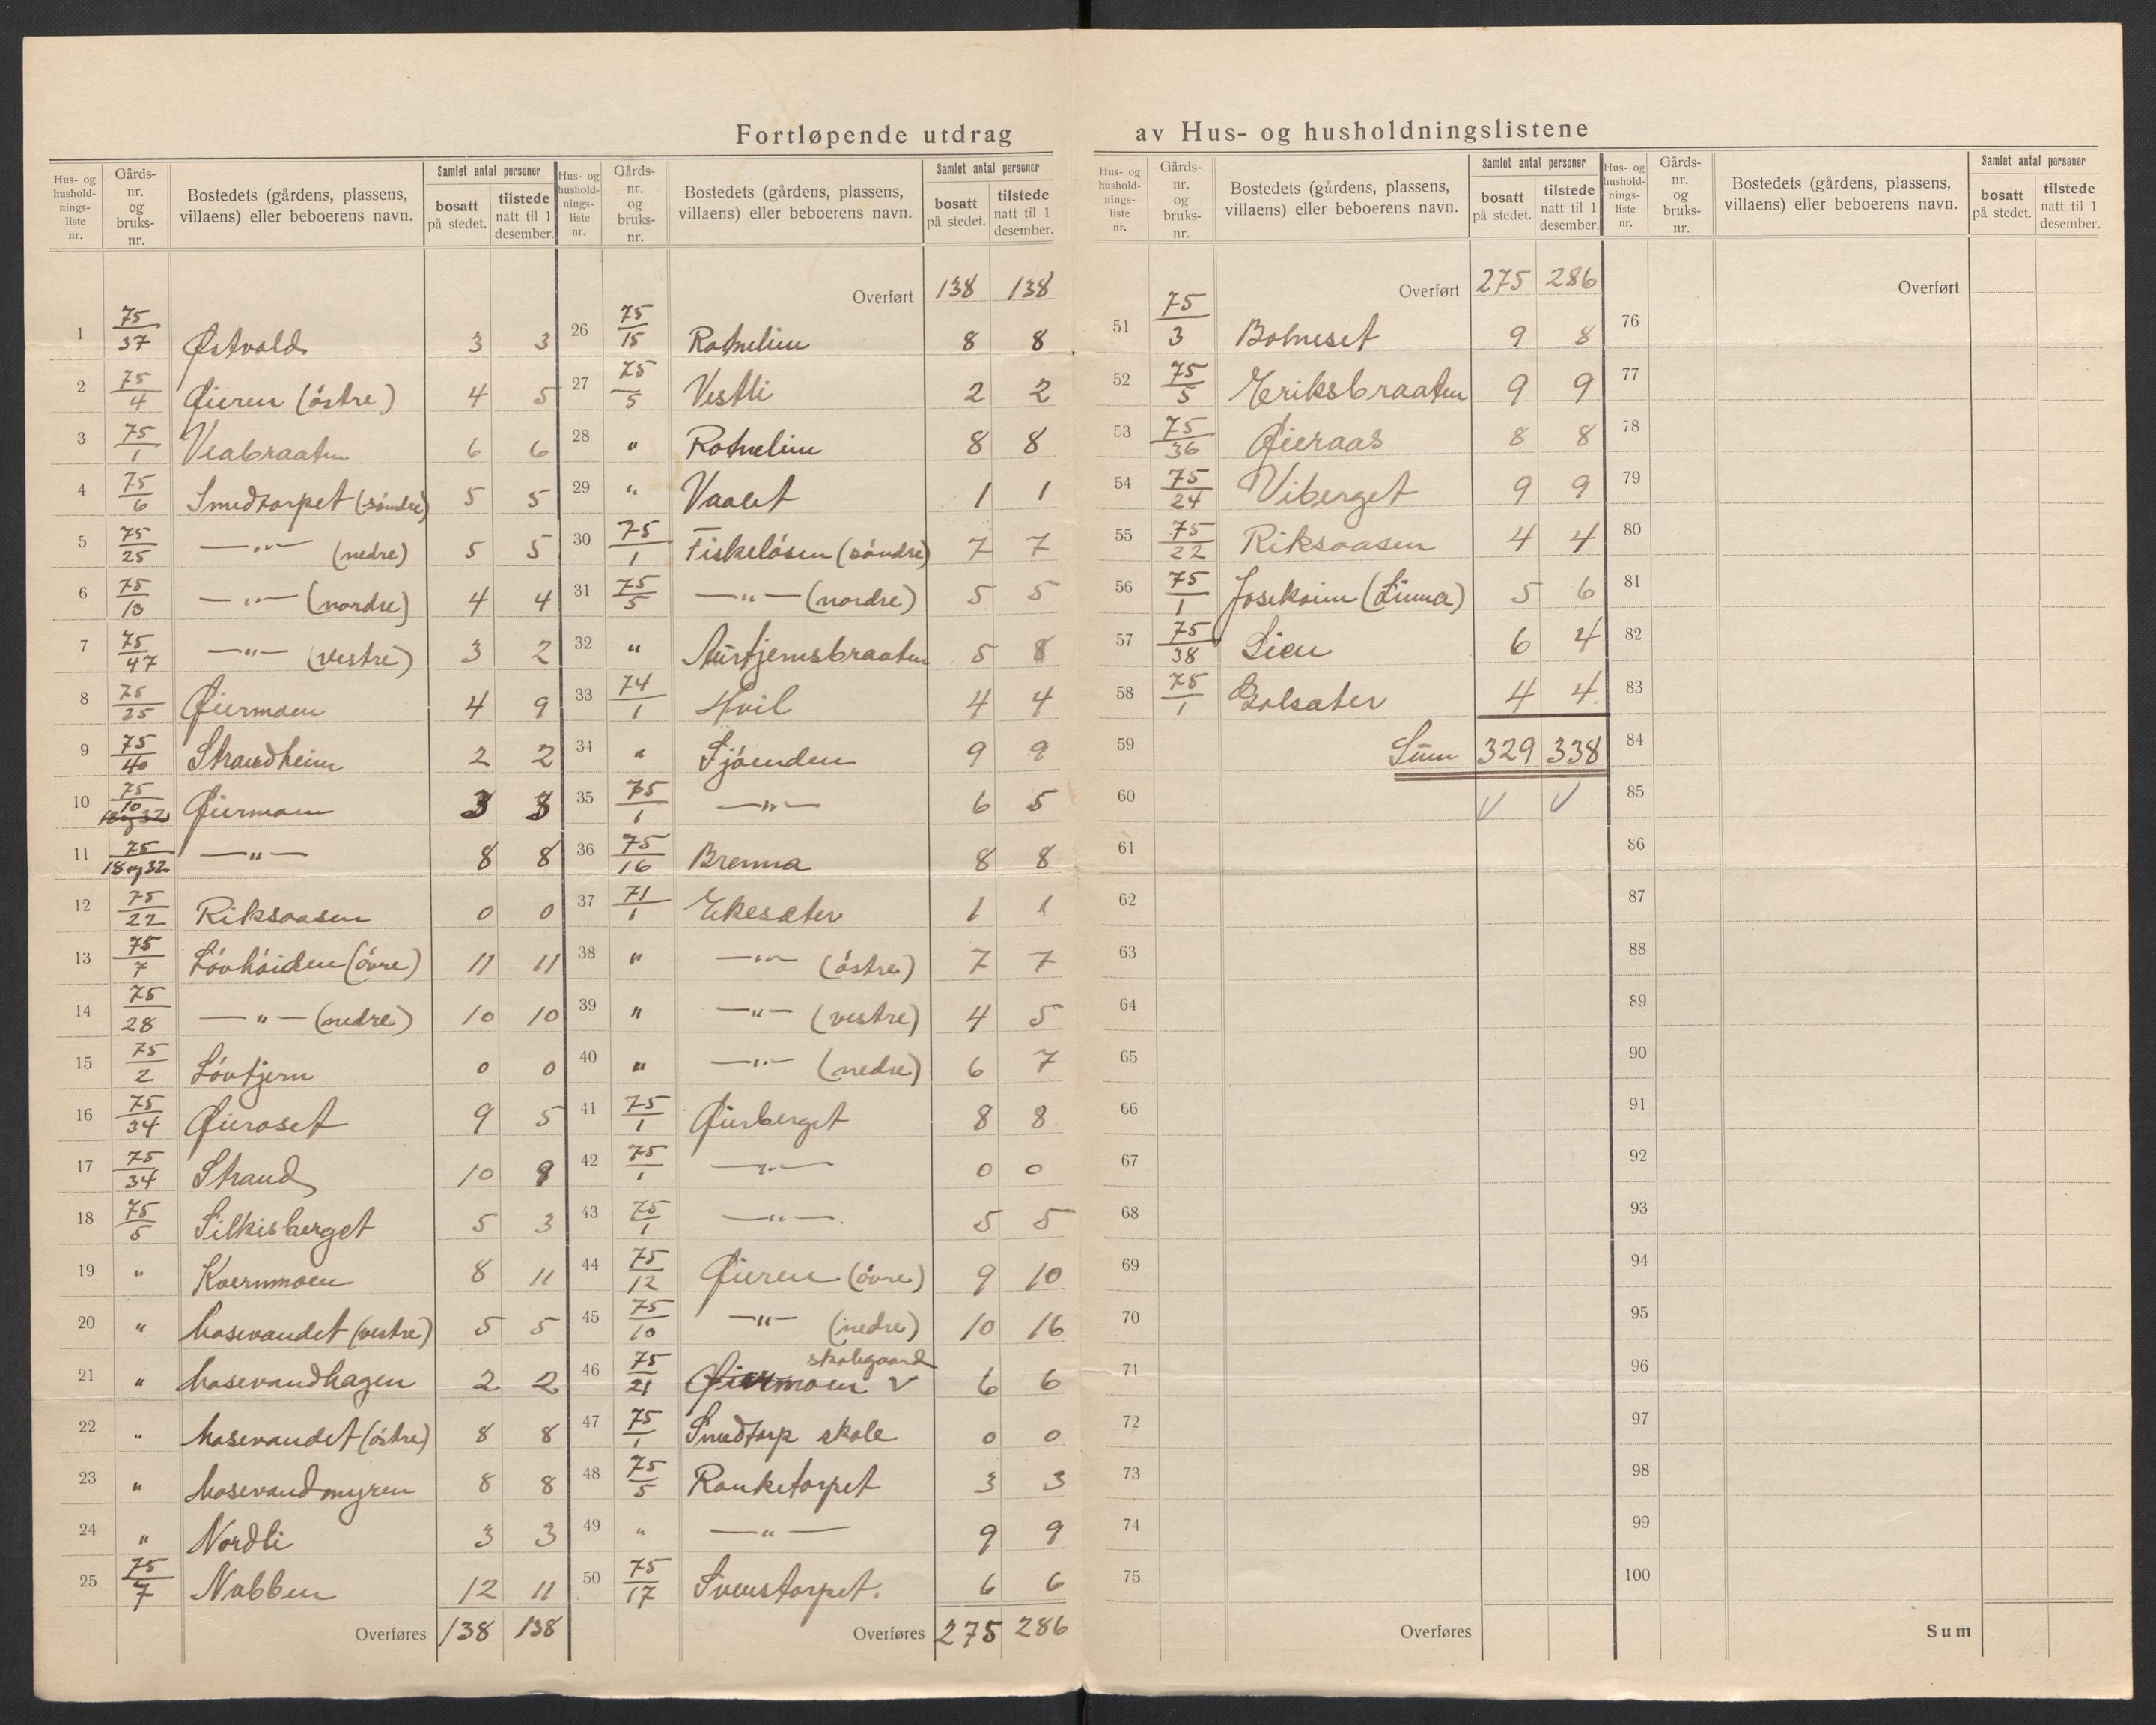 Fortløpende utdrag av Hus- og husholdningslistene
Hus- og husholdningsliste nr. | Gårds-nr. og bruks-nr. | Bostedets (gårdens, plassens, villaens) eller beboerens navn. | Samlet antal personer | bosatt på stedet. | tilstede natt til 1 desember.
1 75/37 Østvold 3 3
2 75/4 Øieren (östre) 4 5
3 75/1 Veabraaten 6 6
4 75/6 Smedtorpet (söndre) 5 5
5 75/25 —"— (nedre) 5 5
6 75/13 —"— (nordre) 4 4
7 75/47 —"— (vestre) 3 2
8 75/25 Øiermoen 4 9
9 75/40 Strandheim 2 2
10 75/10 18 og 32 Øiermoen 3 3
11 75/18 og 32 —"— 8 8
12 75/22 Riksaasen 0 0
13 75/7 Lövhöiden (övre) 11 11
14 75/28 —"— (nedre) 10 10
15 75/2 Lövtjern 0 0
16 75/34 Øieraset 9 5
17 75/34 Strand 10 9
18 75/5 Silkisberget 5 3
19 " Kvernmoen 8 11
20 " Masevandet (vestre) 5 5
21 " Masevandhagen 2 2
22 " Masevandet (östre) 8 8
23 " Masevandmyren 8 8
24 " Nordli 3 3
25 75/7 Nabben 12 11
Overføres 138 138
Hus- og husholdningsliste nr. | Gårds-nr. og bruks-nr. | Bostedets (gårdens, plassens, villaens) eller beboerens navn. | Samlet antal personer | bosatt på stedet. | tilstede natt til 1 desember.
Overført 138 138
26 75/15 Rotnelim 8 8
27 75/5 Vestli 2 2
28 " Rotnelim 8 8
29 " Vaalet 1 1
30 75/1 Fiskelösen (söndre) 7 7
31 75/5 —"— (nordre) 5 5
32 " Aurtjernsbraaten 5 8
33 74/1 Hvil 4 4
34 " Sjöenden 9 9
35 75/1 —"— 6 5
36 75/16 Brenna 8 8
37 71/1 Ekesæter 1 1
38 " —"— (östre) 7 7
39 " —"— (vestre) 4 5
40 " —"— (nedre) 6 7
41 75/1 Øierberget 8 8
42 75/1 —"— 0 0
43 75/1 —"— 5 5
44 75/12 Øieren (övre) 9 10
45 75/10 —"— (nedre) 10 16
skolegaard
46 75/21 Øiermoen v 6 6
47 75/1 Smedtorp skole 0 0
48 75/5 Ranketorpet 3 3
49 " —"— 9 9
50 75/17 Svenstorpet. 6 6
Overføres 275 286
Hus- og husholdningsliste nr. | Gårds-nr. og bruks-nr. | Bostedets (gårdens, plassens, villaens) eller beboerens navn. | Samlet antal personer | bosatt på stedet. | tilstede natt til 1 desember.
Overført 275 286
51 75/3 Botneset 9 8
52 75/5 Eriksbraaten 9 9
53 75/36 Øieraas 8 8
54 75/24 Viberget 9 9
55 75/22 Riksaasen 4 4
56 75/1 Josekoin (Linna) 5 6
57 75/38 Lien 6 4
58 75/1 Golsæter 4 4
59 Sum 329 338
60 V V
61
62
63
64
65
66
67
68
69
70
71
72
73
74
75
Overføres
Hus- og husholdningsliste nr. | Gårds-nr. og bruks-nr. | Bostedets (gårdens, plassens, villaens) eller beboerens navn. | Samlet antal personer | bosatt på stedet. | tilstede natt til 1 desember.
Overført
76
77
78
79
80
81
82
83
84
85
86
87
88
89
90
91
92
93
94
95
96
97
98
99
100
Sum